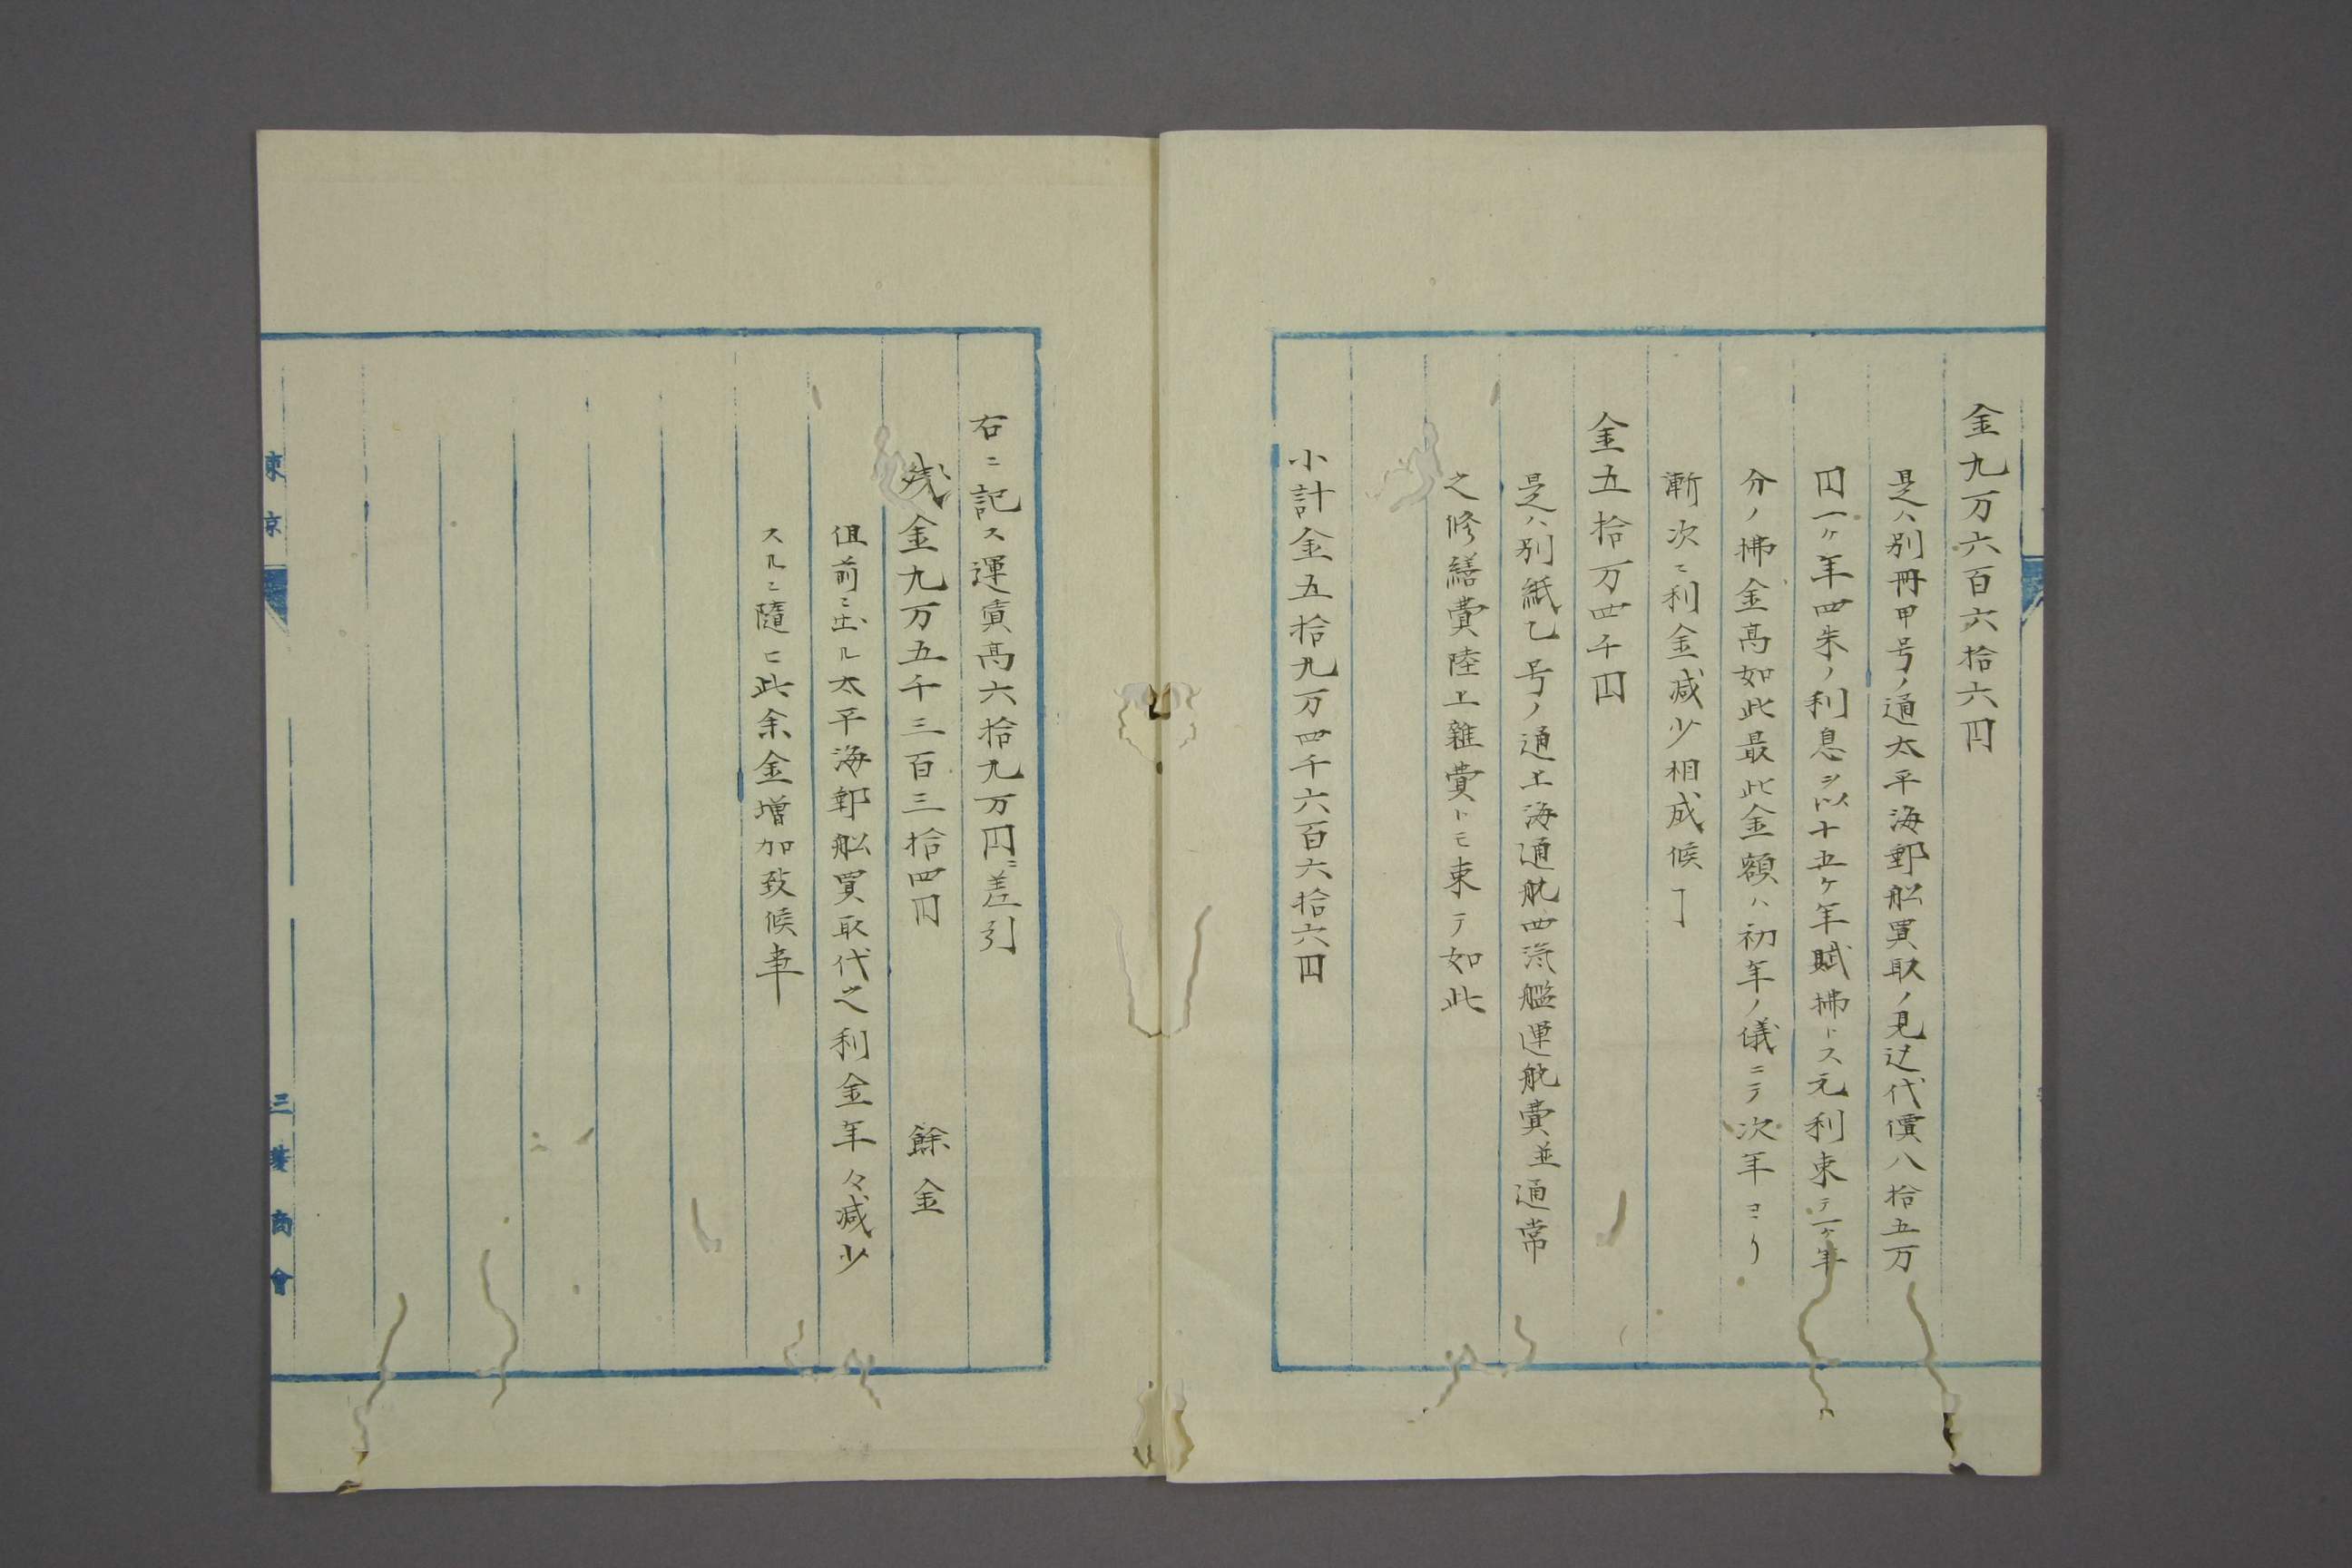 金九万六百六拾六円
是ハ別冊甲号ノ通太平海郵舩買取ノ見込代價八拾五万
円一ヶ年四朱ノ利息ヲ以十五ヶ年賦拂トス元利束テ一ヶ年
分ノ拂金高如此最此金額ハ初年ノ儀ニテ次年ヨリ
漸次ニ利金減少相成候ヿ
金五拾万四千円
是ハ別紙乙号ノ通上海通航四滊艦運航費並通常
之修繕費陸上雜費トモ束テ如此
小計金五拾九万四千六百六拾六円
右ニ記ス運賃高六拾九万円ニ差引
残金九万五千三百三拾四円 餘金
但前ニ出ル太平海郵舩買取代之利金年々減少
スルニ隨ヒ此余金増加致候事
東京 三菱商會